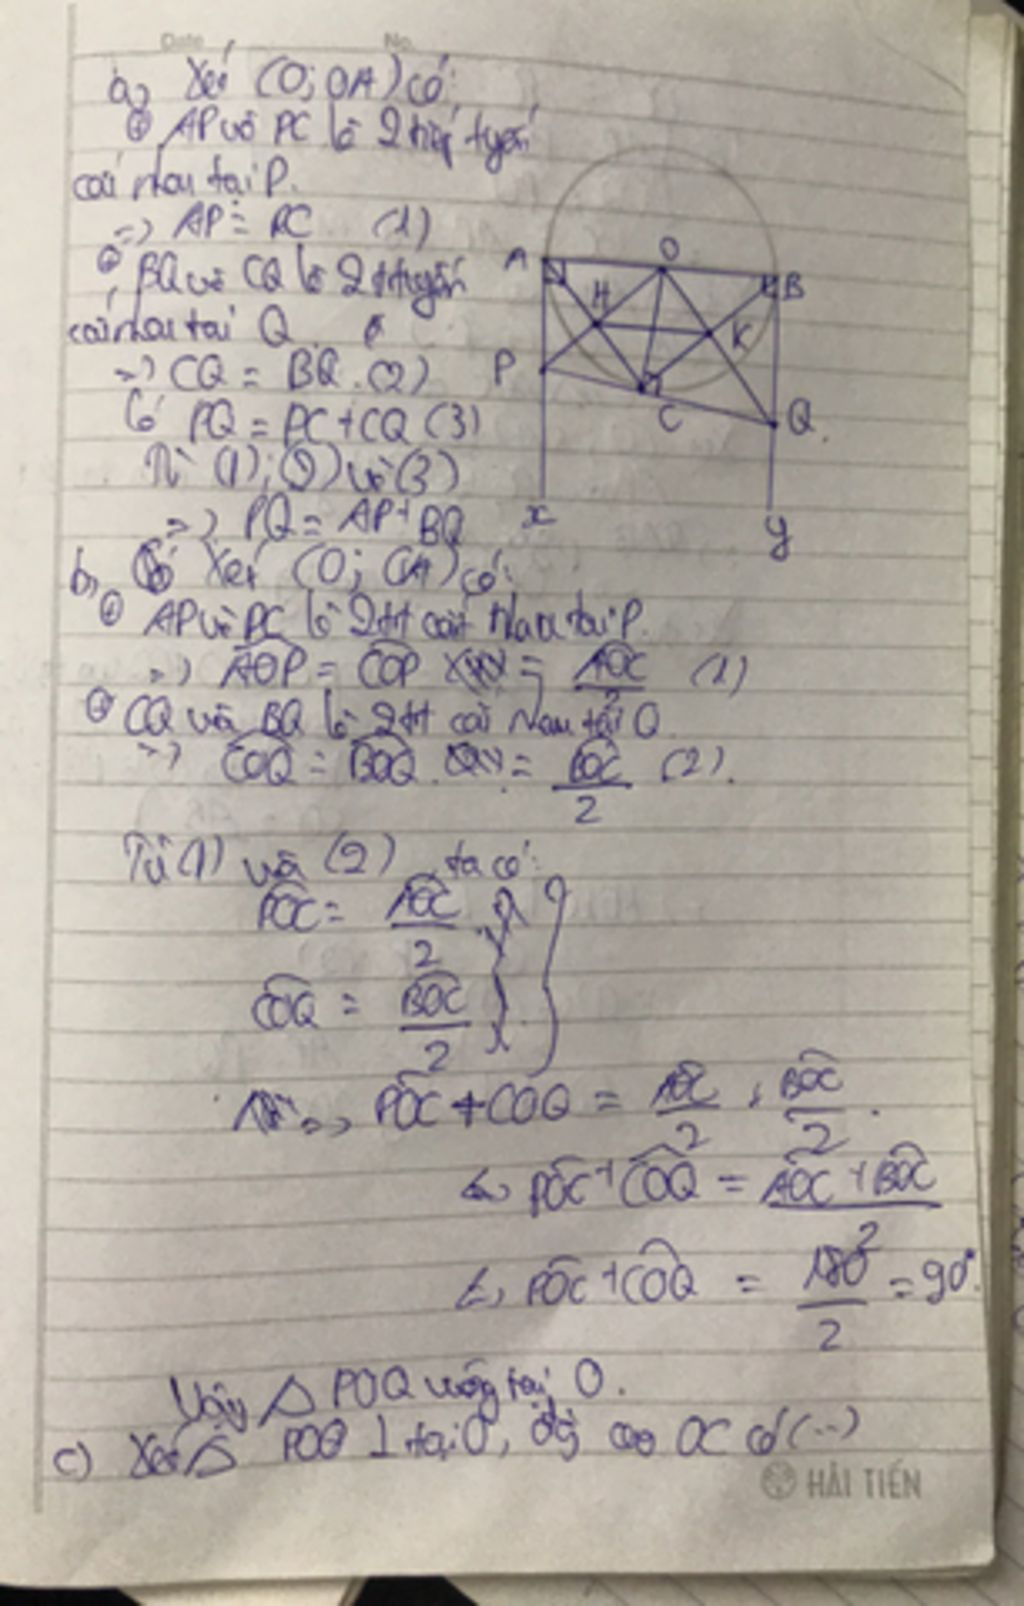 Date No.
a, Xét (O; OA) có:
⊕ AP và PC là 2 tiếp tuyến
cắt nhau tại P.
=> AP = PC (1)
⊕ BQ và CQ là 2 tt tuyến
cắt nhau tại Q.
=> CQ = BQ. (2)
Có PQ = PC + CQ (3)
Từ (1); (2) và (3)
=> PQ = AP + BQ
A O B
H K
P C Q
x y
b, Xét (O; OA) có:
⊕ AP và PC là 2 tt cắt nhau tại P.
=> AOP = COP = AOC/2 (1)
⊕ CQ và BQ là 2 tt cắt nhau tại Q
=> COQ = BOQ = BOC/2 (2).
Từ (1) và (2), ta có:
POC = AOC/2
COQ = BOC/2
=> POC + COQ = AOC/2 + BOC/2.
<=> POC + COQ = AOC + BOC/2
<=> POC + COQ = 180°/2 = 90°.
Vậy △ POQ vuông tại O.
c) Xét △ POQ ⊥ tại O, đg cao OC có (...)
HẢI TIẾN